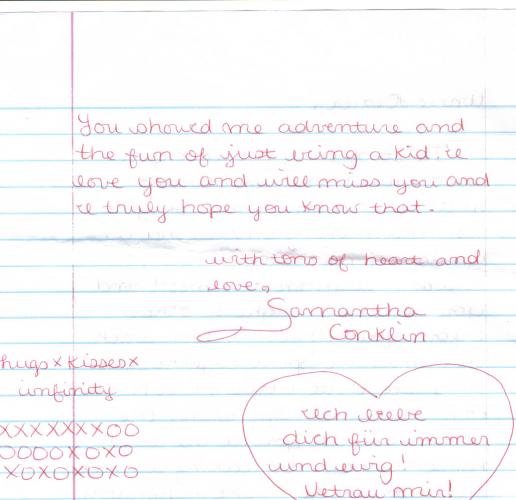 You showed me adventure and
the fun of just being a kid. I
love you and will miss you and
I truly hope you know that.
with tons of heart and
love,
Samantha
Conklin
hugs x kisses x
infinity
XXXXXXXOO
OOOOXOXO
XOXOXOXO
Ich liebe
dich für immer
und ewig!
Vetrau mir!